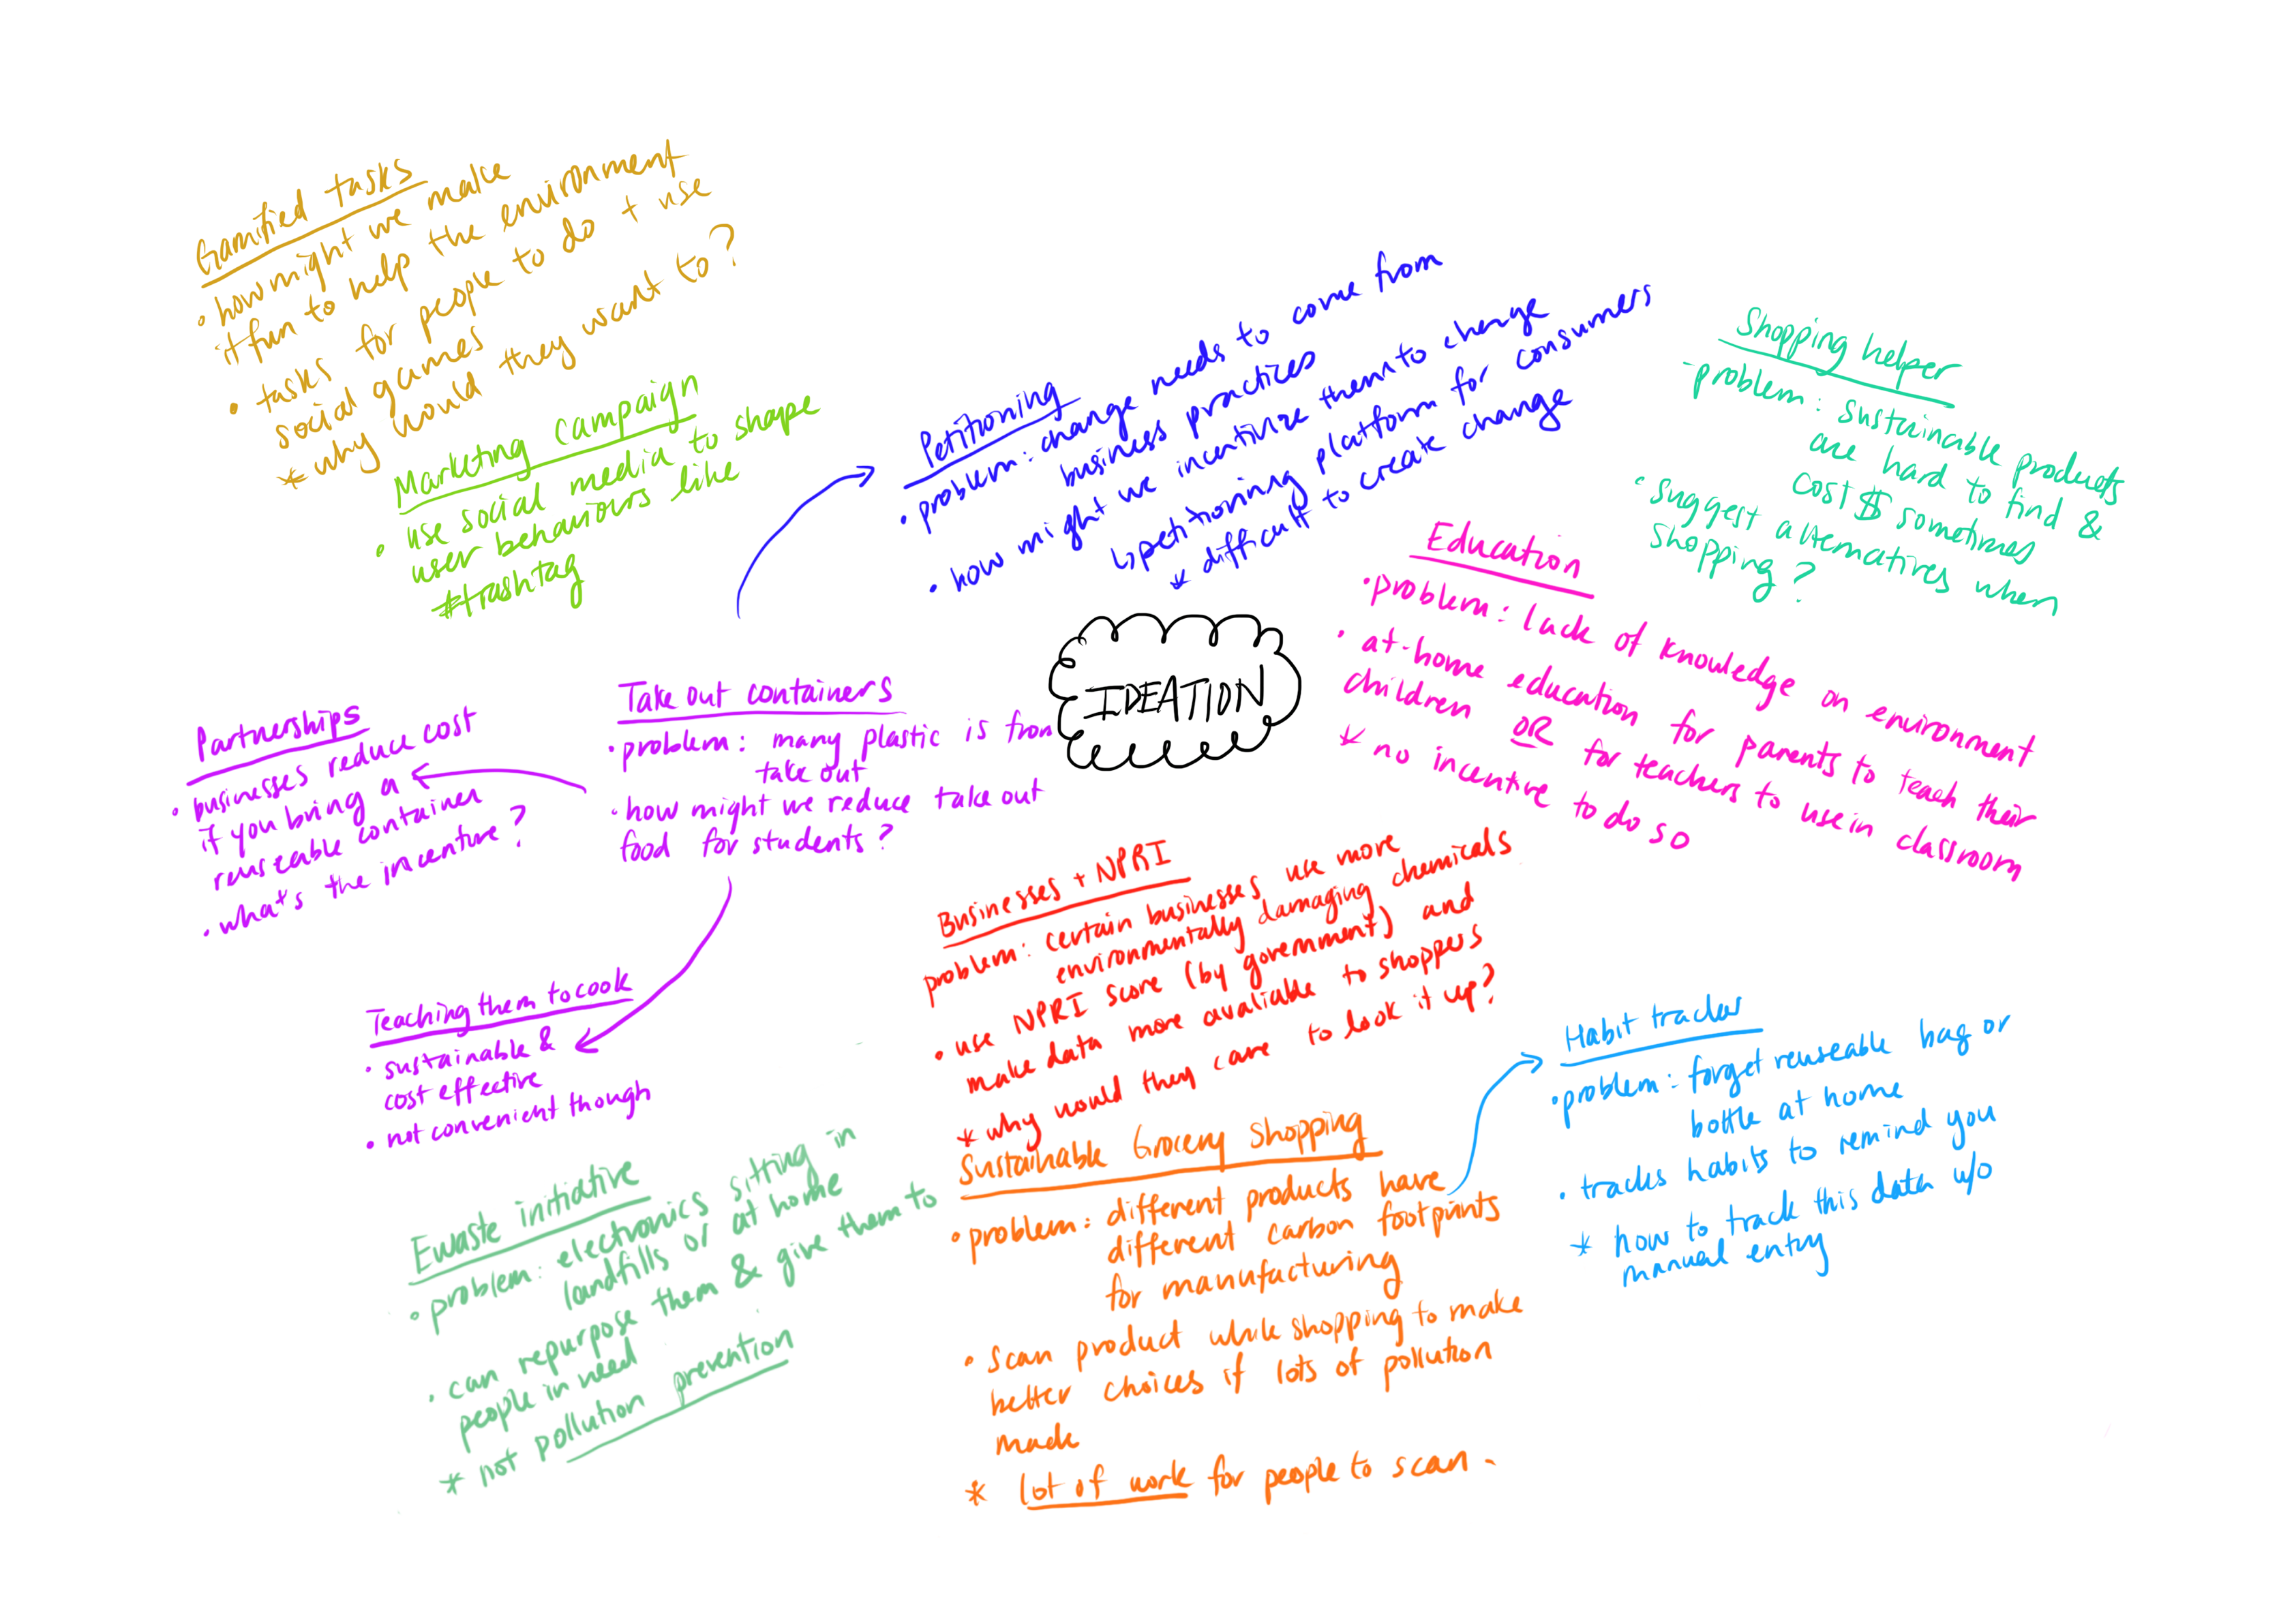 Gamified tasks
• how might we make
it fun to help the environment
• tasks for people to do + use
social games
* why would they want to?
Marketing campaign
• use social media to shape
user behaviours like
#trashtag
Petitioning
• problem: change needs to come from
business practices
• how might we incentivize them to change
↳ petitioning platform for consumers
* difficult to create change
Shopping helper
- problem: sustainable products
are hard to find &
cost $ sometimes
• suggest alternatives when
shopping?
Education
• problem: lack of knowledge on environment
• at-home education for parents to teach their
children OR for teachers to use in classroom
* no incentive to do so
IDEATION
Take out containers
• problem: many plastic is from
take out
• how might we reduce take out
food for students?
Partnerships
• businesses reduce cost
if you bring a
reuseable container
• what's the incentive?
Teaching them to cook
• sustainable &
cost effective
• not convenient though
Businesses + NPRI
problem: certain businesses use more
environmentally damaging chemicals
• use NPRI score (by government) and
make data more avaliable to shoppers
* why would they care to look it up?
Habit tracker
• problem: forget reuseable bag or
bottle at home
• tracks habits to remind you
* how to track this data w/o
manual entry
Ewaste initiative
• problem: electronics sitting in
landfills or at home
• can repurpose them & give them to
people in need
* not pollution prevention
Sustainable Grocery Shopping
• problem: different products have
different carbon footprints
for manufacturing
• scan product while shopping to make
better choices if lots of pollution
made
* lot of work for people to scan -